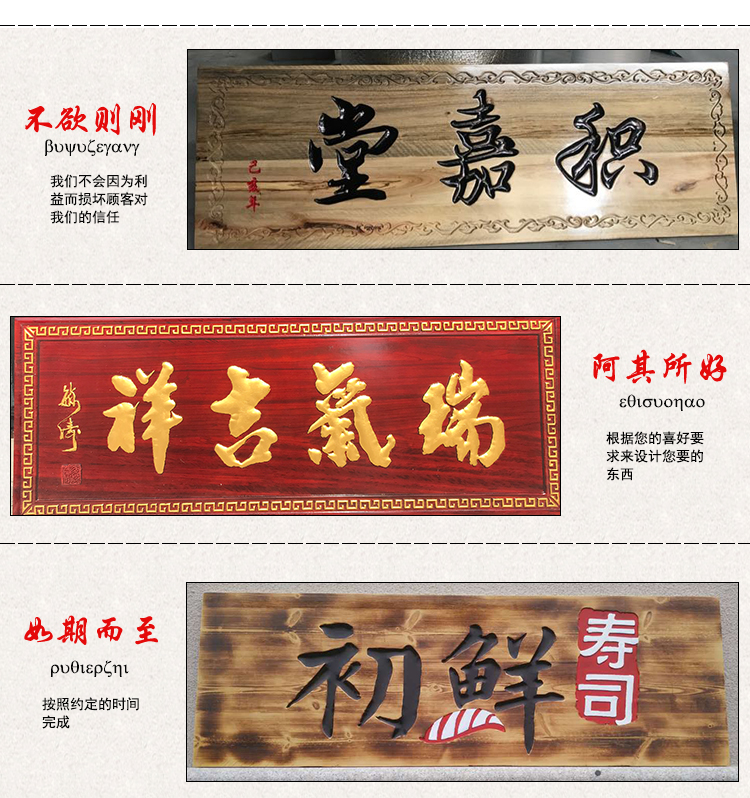 不欲则刚
βυψυζεγανγ
我们不会因为利
益而损坏顾客对
我们的信任
积嘉堂
己亥年
瑞氣吉祥
阿其所好
εθισυοηαο
根据您的喜好要
求来设计您要的
东西
如期而至
ρυθιερζηι
按照约定的时间
完成
初鲜
寿司